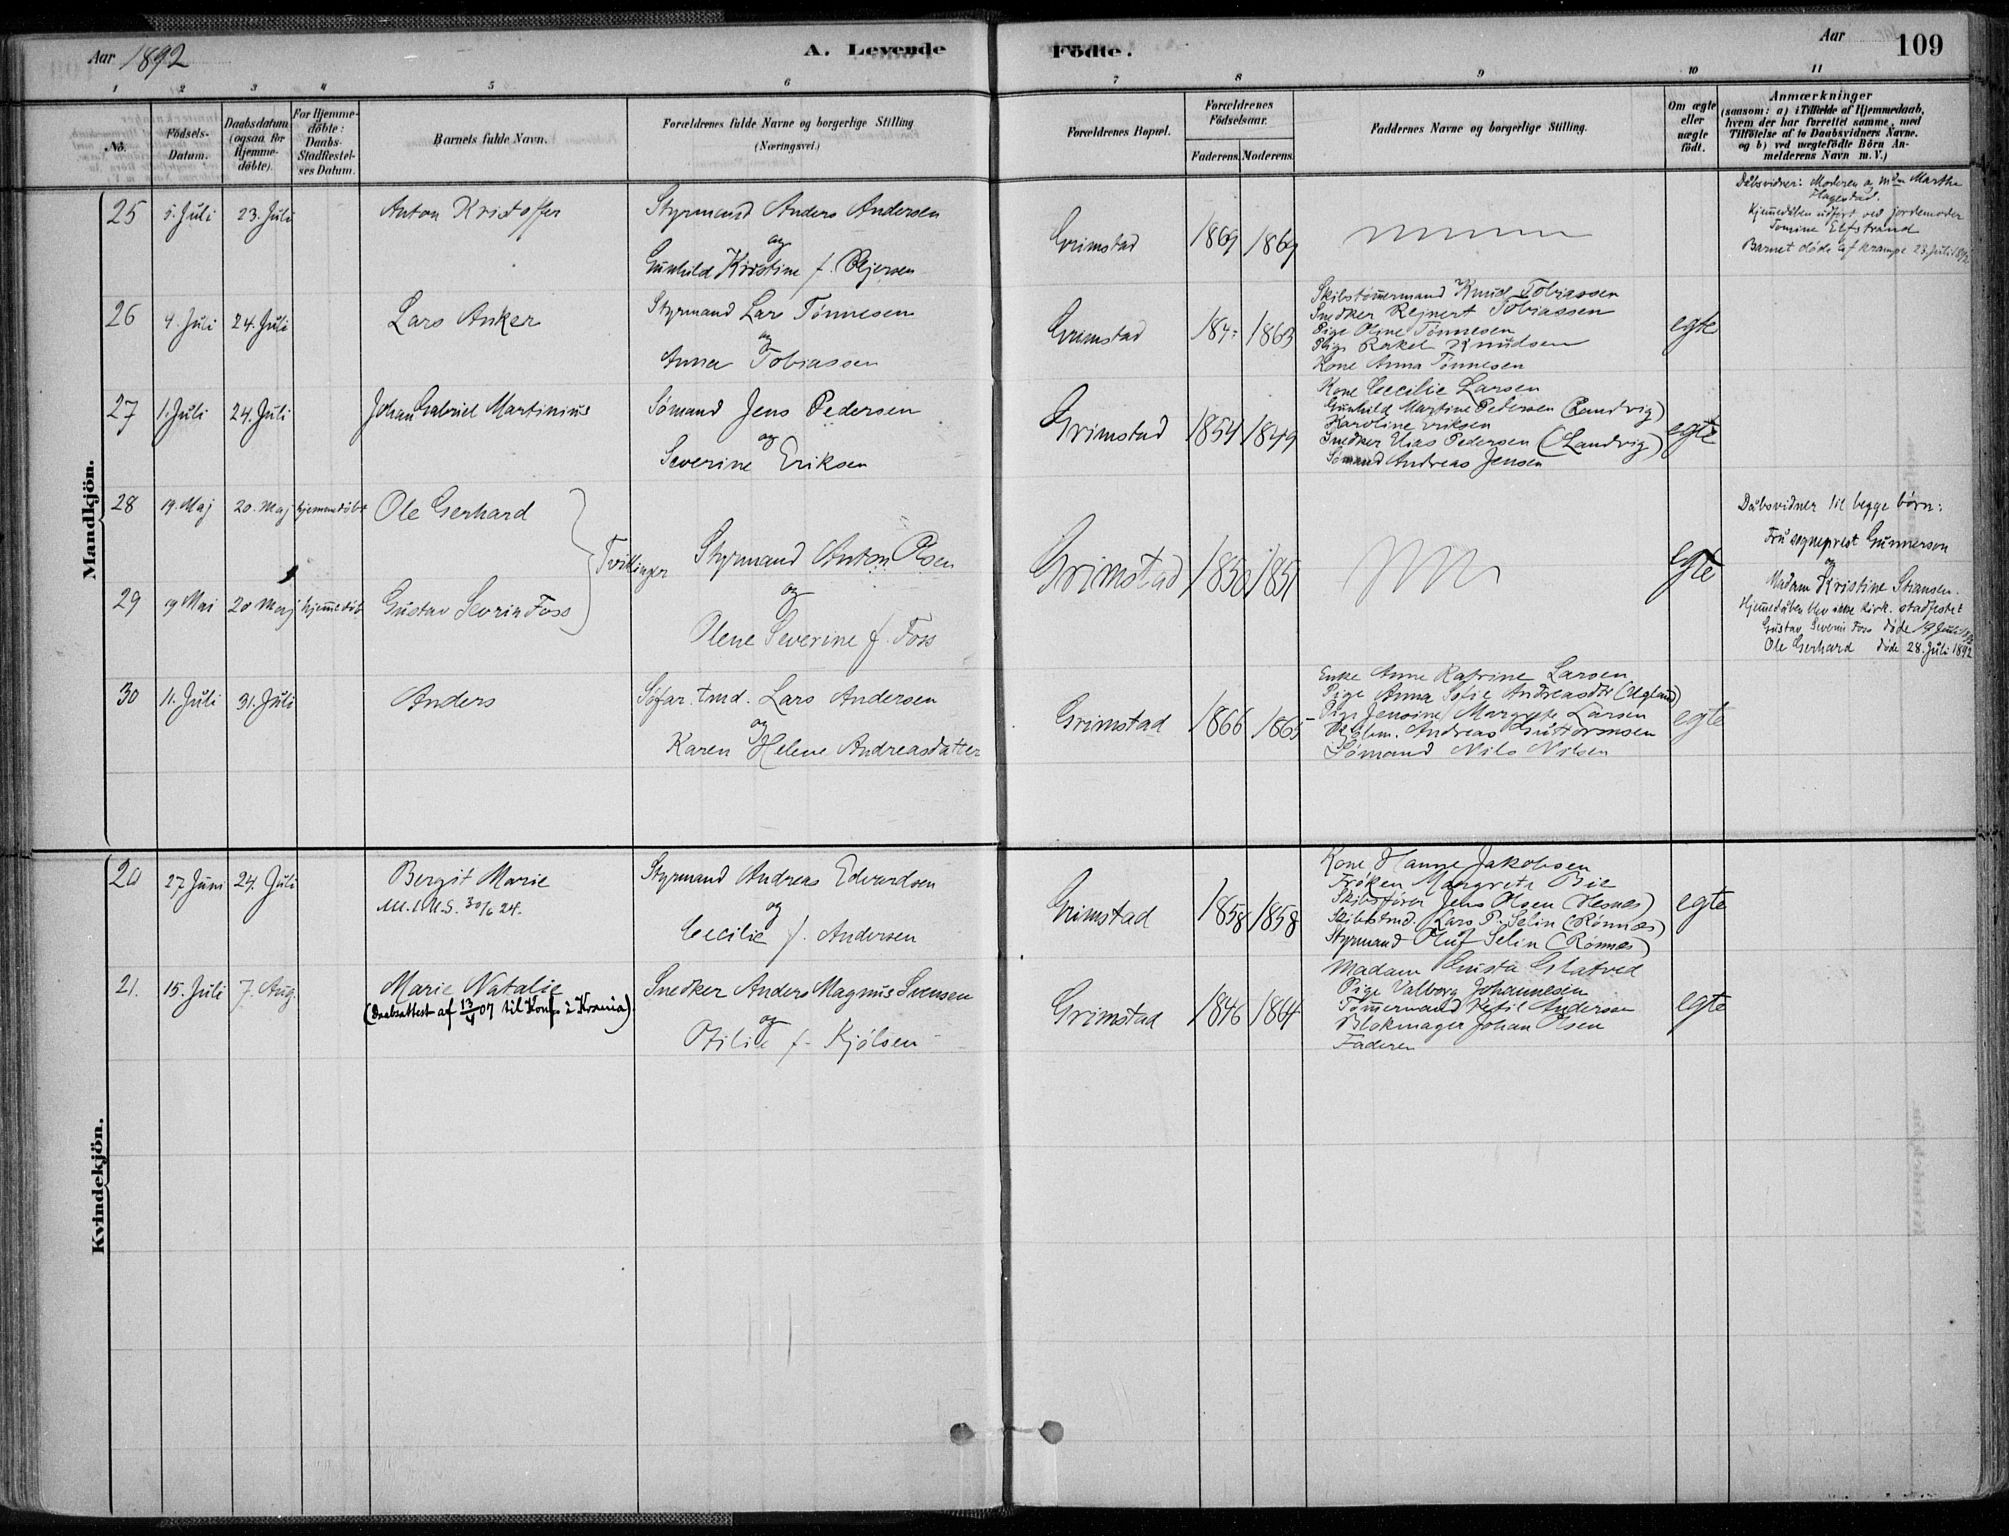 Aar 1892
A. Levende
Födte.
Aar
109
1 2 3 4 5 6 7 8 9 10 11
No.
Födsels-
Datum.
Daabsdatum
(ogsaa for
Hjemme-
döbte).
For Hjemme-
döbte:
Daabs-
Stadfæstel-
ses Datum.
Barnets fulde Navn.
Forældrenes fulde Navne og borgerlige Stilling
(Næringsvei.)
Forældrenes Bopæl.
Forældrenes
Födselsaar.
Faderens. Moderens.
Faddernes Navne og borgerlige Stilling.
Om ægte
eller
uægte
födt.
Anmærkninger
(saasom: a) i Tilfælde af Hjemmedaab,
hvem der har forrettet samme, med
Tilföielse af to Daabsvidners Navne.
og b) ved uægtefödte Börn An-
melderens Navn m. V.)
Mandkjön.
25 5. Juli 23. Juli
Anton Kristoffer
Styrmand Anders Andersen
og
Gunhild Kristine f.
Grimstad 1869 1869
Dåbsvidner: Moderen og Mdm Marthe
Hagestad.
Hjemmedåben udført ved jordemoder
Elfstrand
Barnet døde af krampe 23. Juli 1892
26 4. Juli 24. Juli
Lars Anker
Styrmand Lars Tønnesen
og
Anna Tobiassen
Grimstad 1863
Skibstømmermand Knud Tobiassen
Snedker Rejnert Tobiassen
Pige Oline Tønnesen
Pige Rakel Knudsen
Kone Anna Tønnesen
egte
27 1. Juli 24. Juli
Johan Gabriel Martinius
Sømand Jens Pedersen
og
Severine Eriksen
Grimstad 1854 1849
Kone Cecilie Larsen
Gunhild Martine Pedersen (Landvig)
Karoline Eriksen
Snedker Elias Pedersen (Landvig)
Sømand Andreas Jensen
egte
28 19. Maj 20. Maj hjemmedøbt
Ole Gerhard
Tvillinger
Styrmand Anton Olsen
og
Olene Severine f. Foss
Grimstad 1850 1851
egte
Dåbsvidner til begge børn:
Fru sogneprest Gunnerson
og
Madam Kristine Stransen.
Hjemmedåben blev ikke kirk. stadfestet
Gustav Severin Foss døde 19 Juli 1892
Ole Gerhard døde 28. Juli 1892
29 19 Mai 20 Maj hjemmedøbt
Gustav Sevrin Foss
30 11. Juli 31. Juli
Anders
Søfar. tmd. Lars Andersen
og
Karen Helene Andreasdatter
Grimstad 1866 1865
Enke Anne Katrine Larsen
Pige Anna Sofie Andreasdtr (Ugland)
Pige Jensine Margrete Larsen
Andreas Guttormsen
Sømand Nils Nilsen
egte
Kvindekjön.
20 27 Juni 24. Juli
Bergit Marie
30/6 24.
Styrmand Andreas Edvardsen
og
Cecilie f. Andersen
Grimstad 1858 1858
Kone Hanne Jakobsen
Frøken Margrete Bie
Skibsfører Jens Olsen (Hesnes)
Skibstmd. Lars P. Selin (Rønnes)
Styrmand Oluf Selin (Rønnes)
egte
21. 15. Juli 7. Aug.
Marie Natalie
(Daabsattest af 13/4 07 til Konf. i Krania)
Snedker Anders Magnus Svensen
og
Otilie f. Kjølsen
Grimstad 1846 1864
Madam Gusta Glatved
Pige Valborg Johannesen
Tømmermand Ketil Andersen
Blokmager Johan Olsen
Faderen
egte